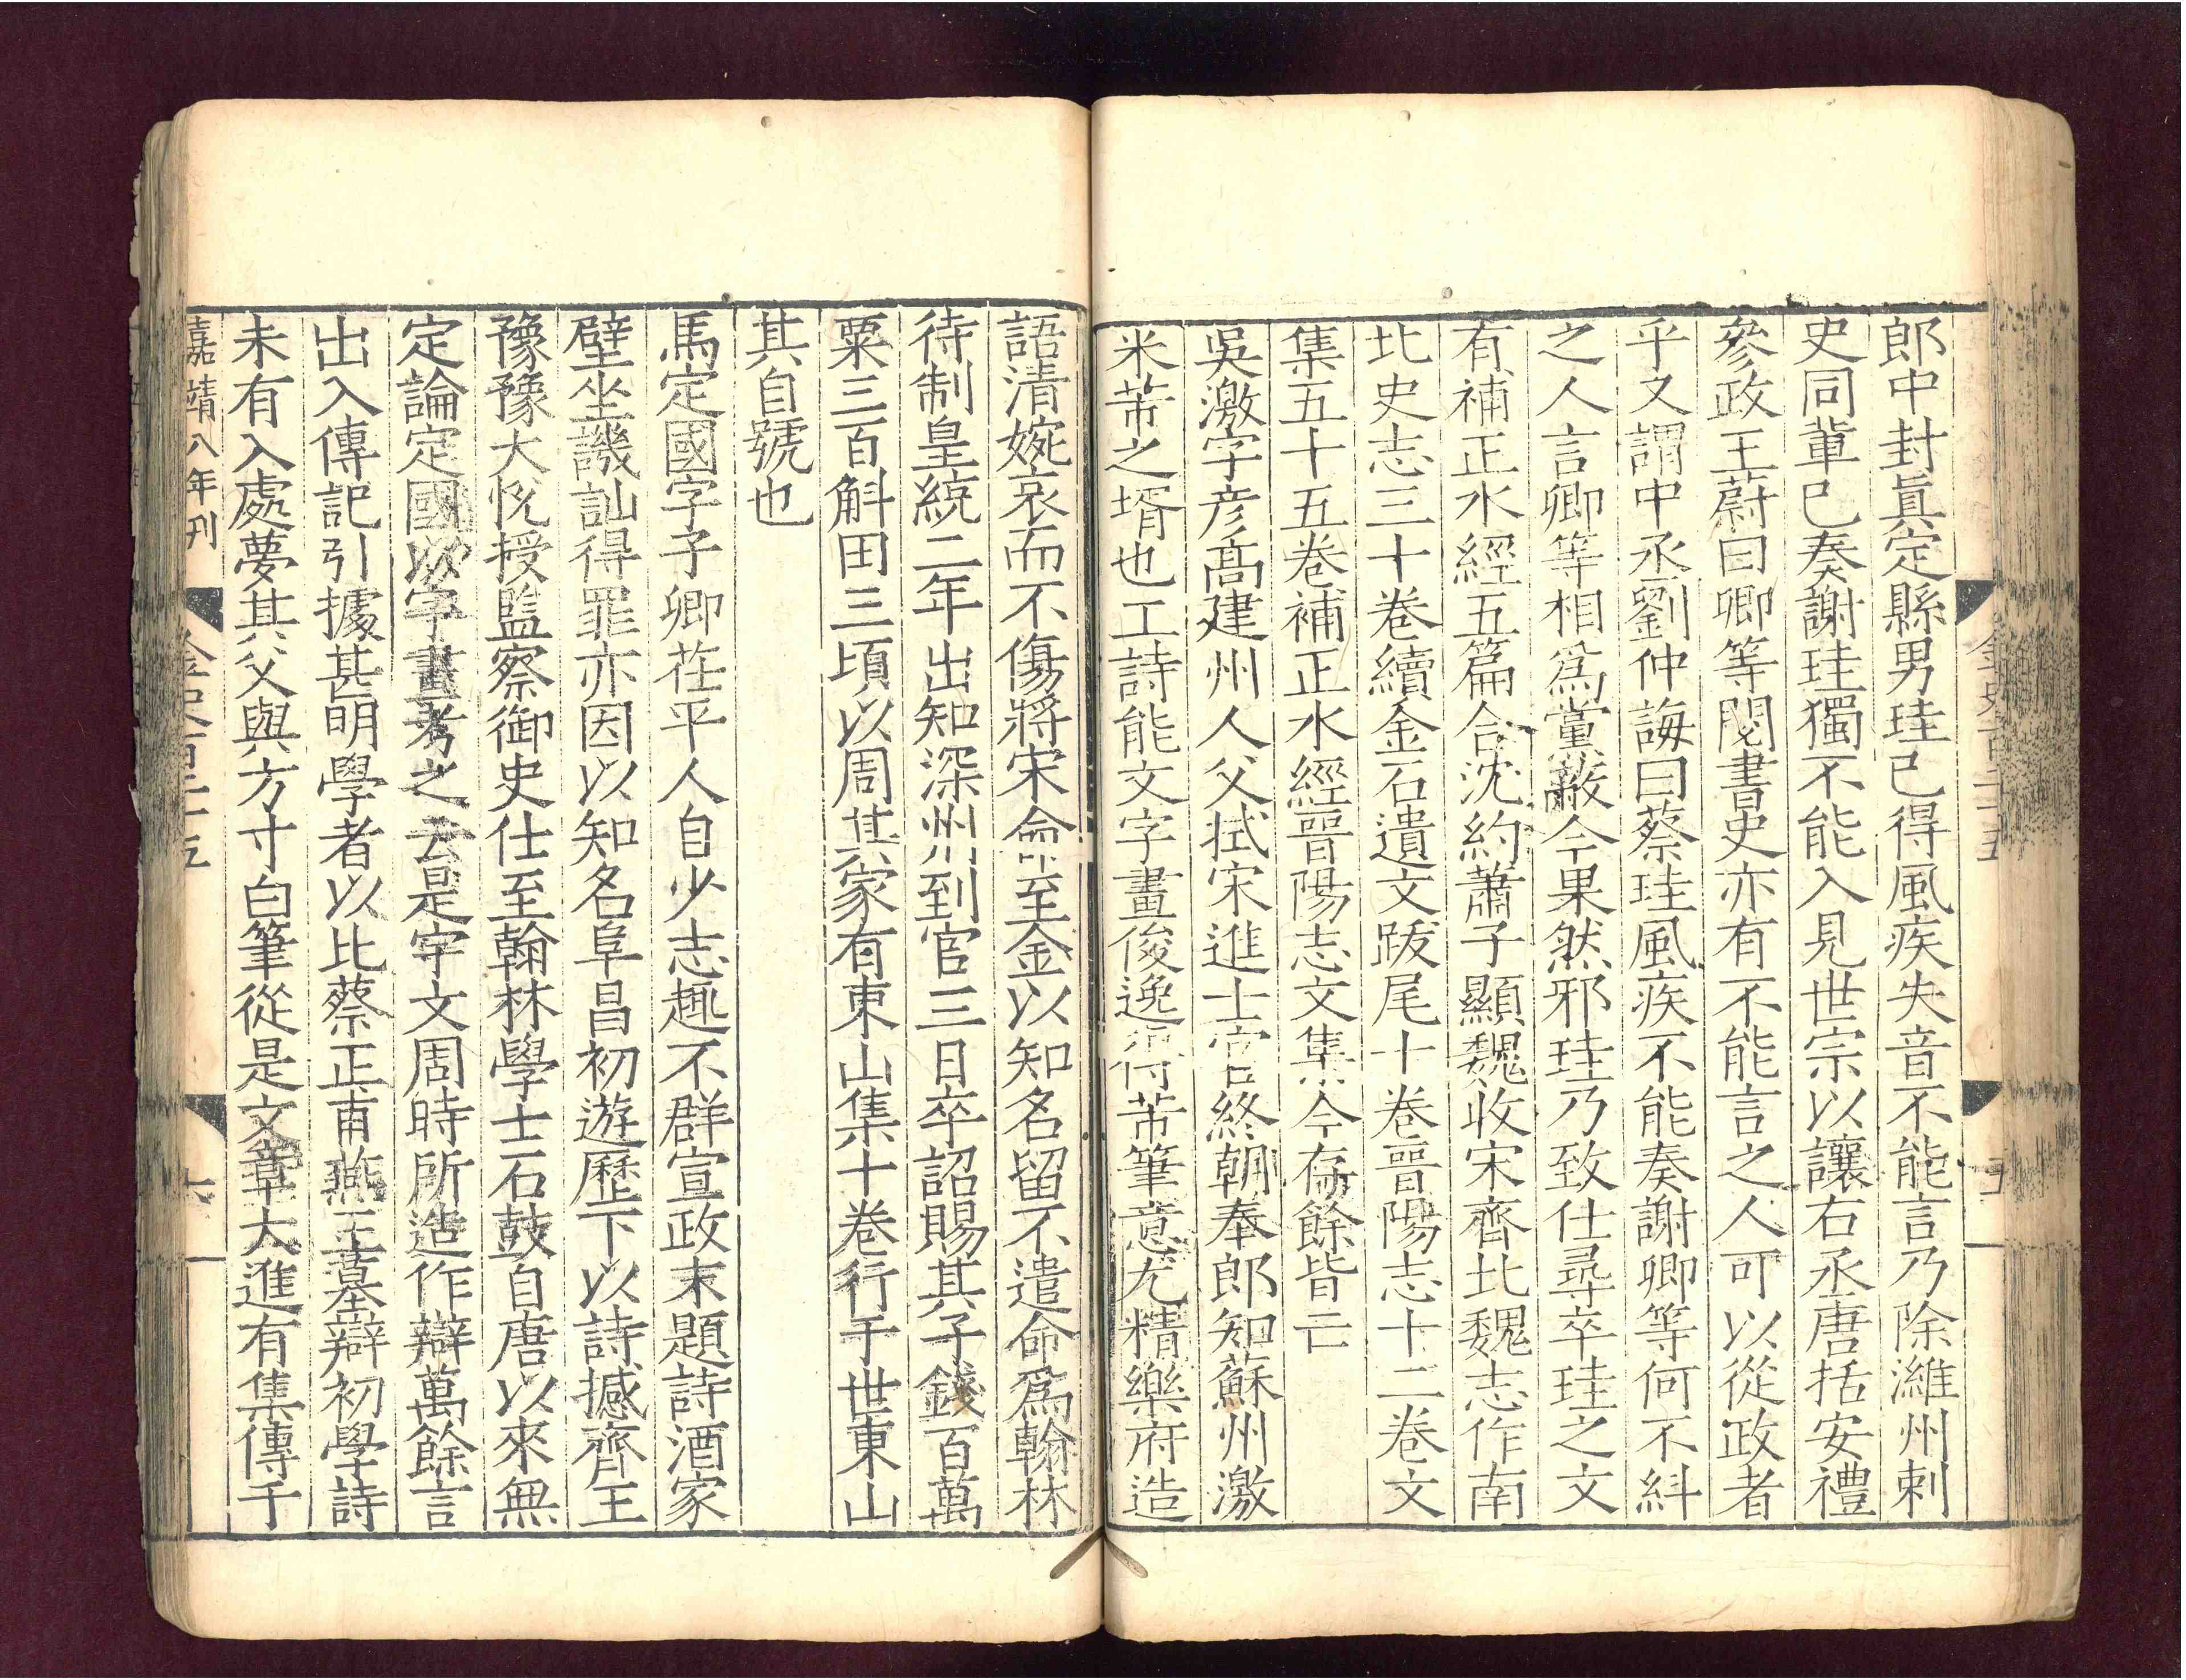 郎中封眞定縣男珪已得風疾失音不能言乃除濰州刺
史同軰已奏謝珪獨不能入見世宗以讓右丞唐括安禮
參政王蔚曰卿等閱書史亦有不能言之人可以從政者
乎又謂中丞劉仲誨曰蔡珪風疾不能奏謝卿等何不糾
之人言卿等相爲黨蔽今果然邪珪乃致仕尋卒珪之文
有補正水經五篇合沈約蕭子顯魏收宋齊北魏志作南
北史志三十卷續金石遺文跋尾十卷晉陽志十二卷文
集五十五卷補正水經晉陽志文集今存餘皆亡
吳激字彥高建州人父拭宋進士官終朝奉郎知蘇州激
米芾之壻也工詩能文字畫俊逸得芾筆意尤精樂府造
語清婉哀而不傷將宋命至金以知名留不遣命爲翰林
待制皇統二年出知深州到官三日卒詔賜其子錢百萬
粟三百斛田三頃以周其家有東山集十卷行于世東山
其自號也
馬定國字子卿茌平人自少志趣不群宣政末題詩酒家
壁坐譏訕得罪亦因以知名阜昌初遊歷下以詩撼齊王
豫豫大悅授監察御史仕至翰林學士石鼓自唐以來無
定論定國以字畫考之云是宇文周時所造作辯萬餘言
出入傳記引據甚明學者以比蔡正甫燕王墓辯初學詩
未有入處夢其父與方寸白筆從是文章大進有集傳于
嘉靖八年刊
金史百二十五
六